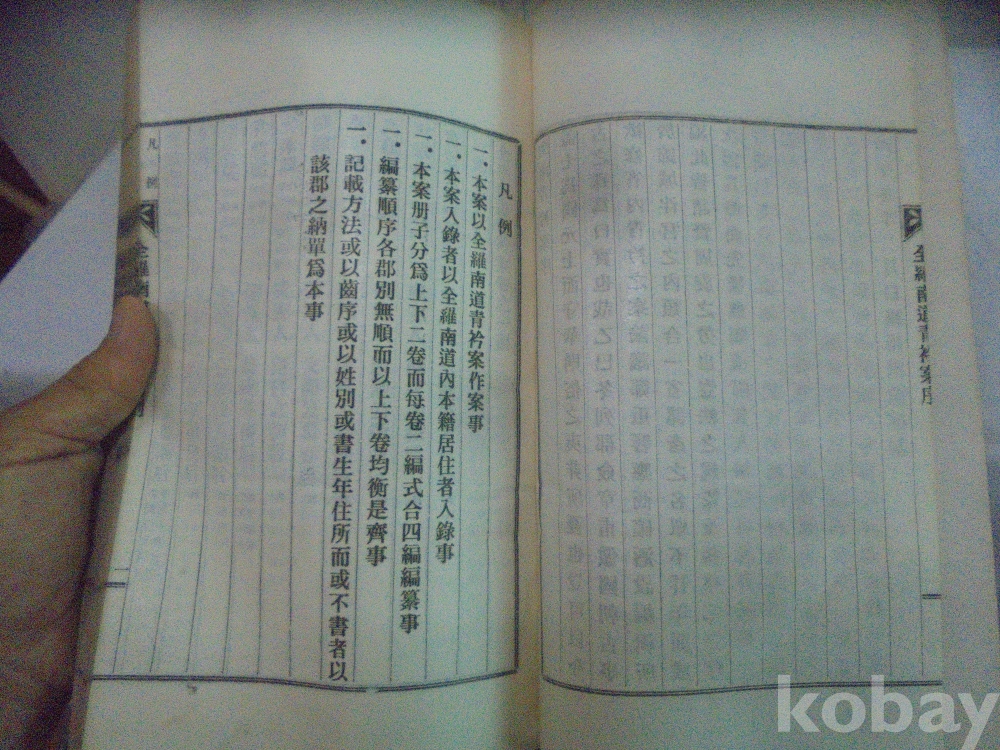 全羅南道青衿案序
凡例
一. 本案以全羅南道青衿案作案事
一. 本案入錄者以全羅南道內本籍居住者入錄事
一. 本案册子分爲上下二卷而每卷二編式合四編編纂事
一. 編纂順序各郡別無順而以上下卷均衡是齊事
一. 記載方法或以齒序或以姓別或書生年住所而或不書者以
該郡之納單爲本事
凡例
全羅南
一
kobay